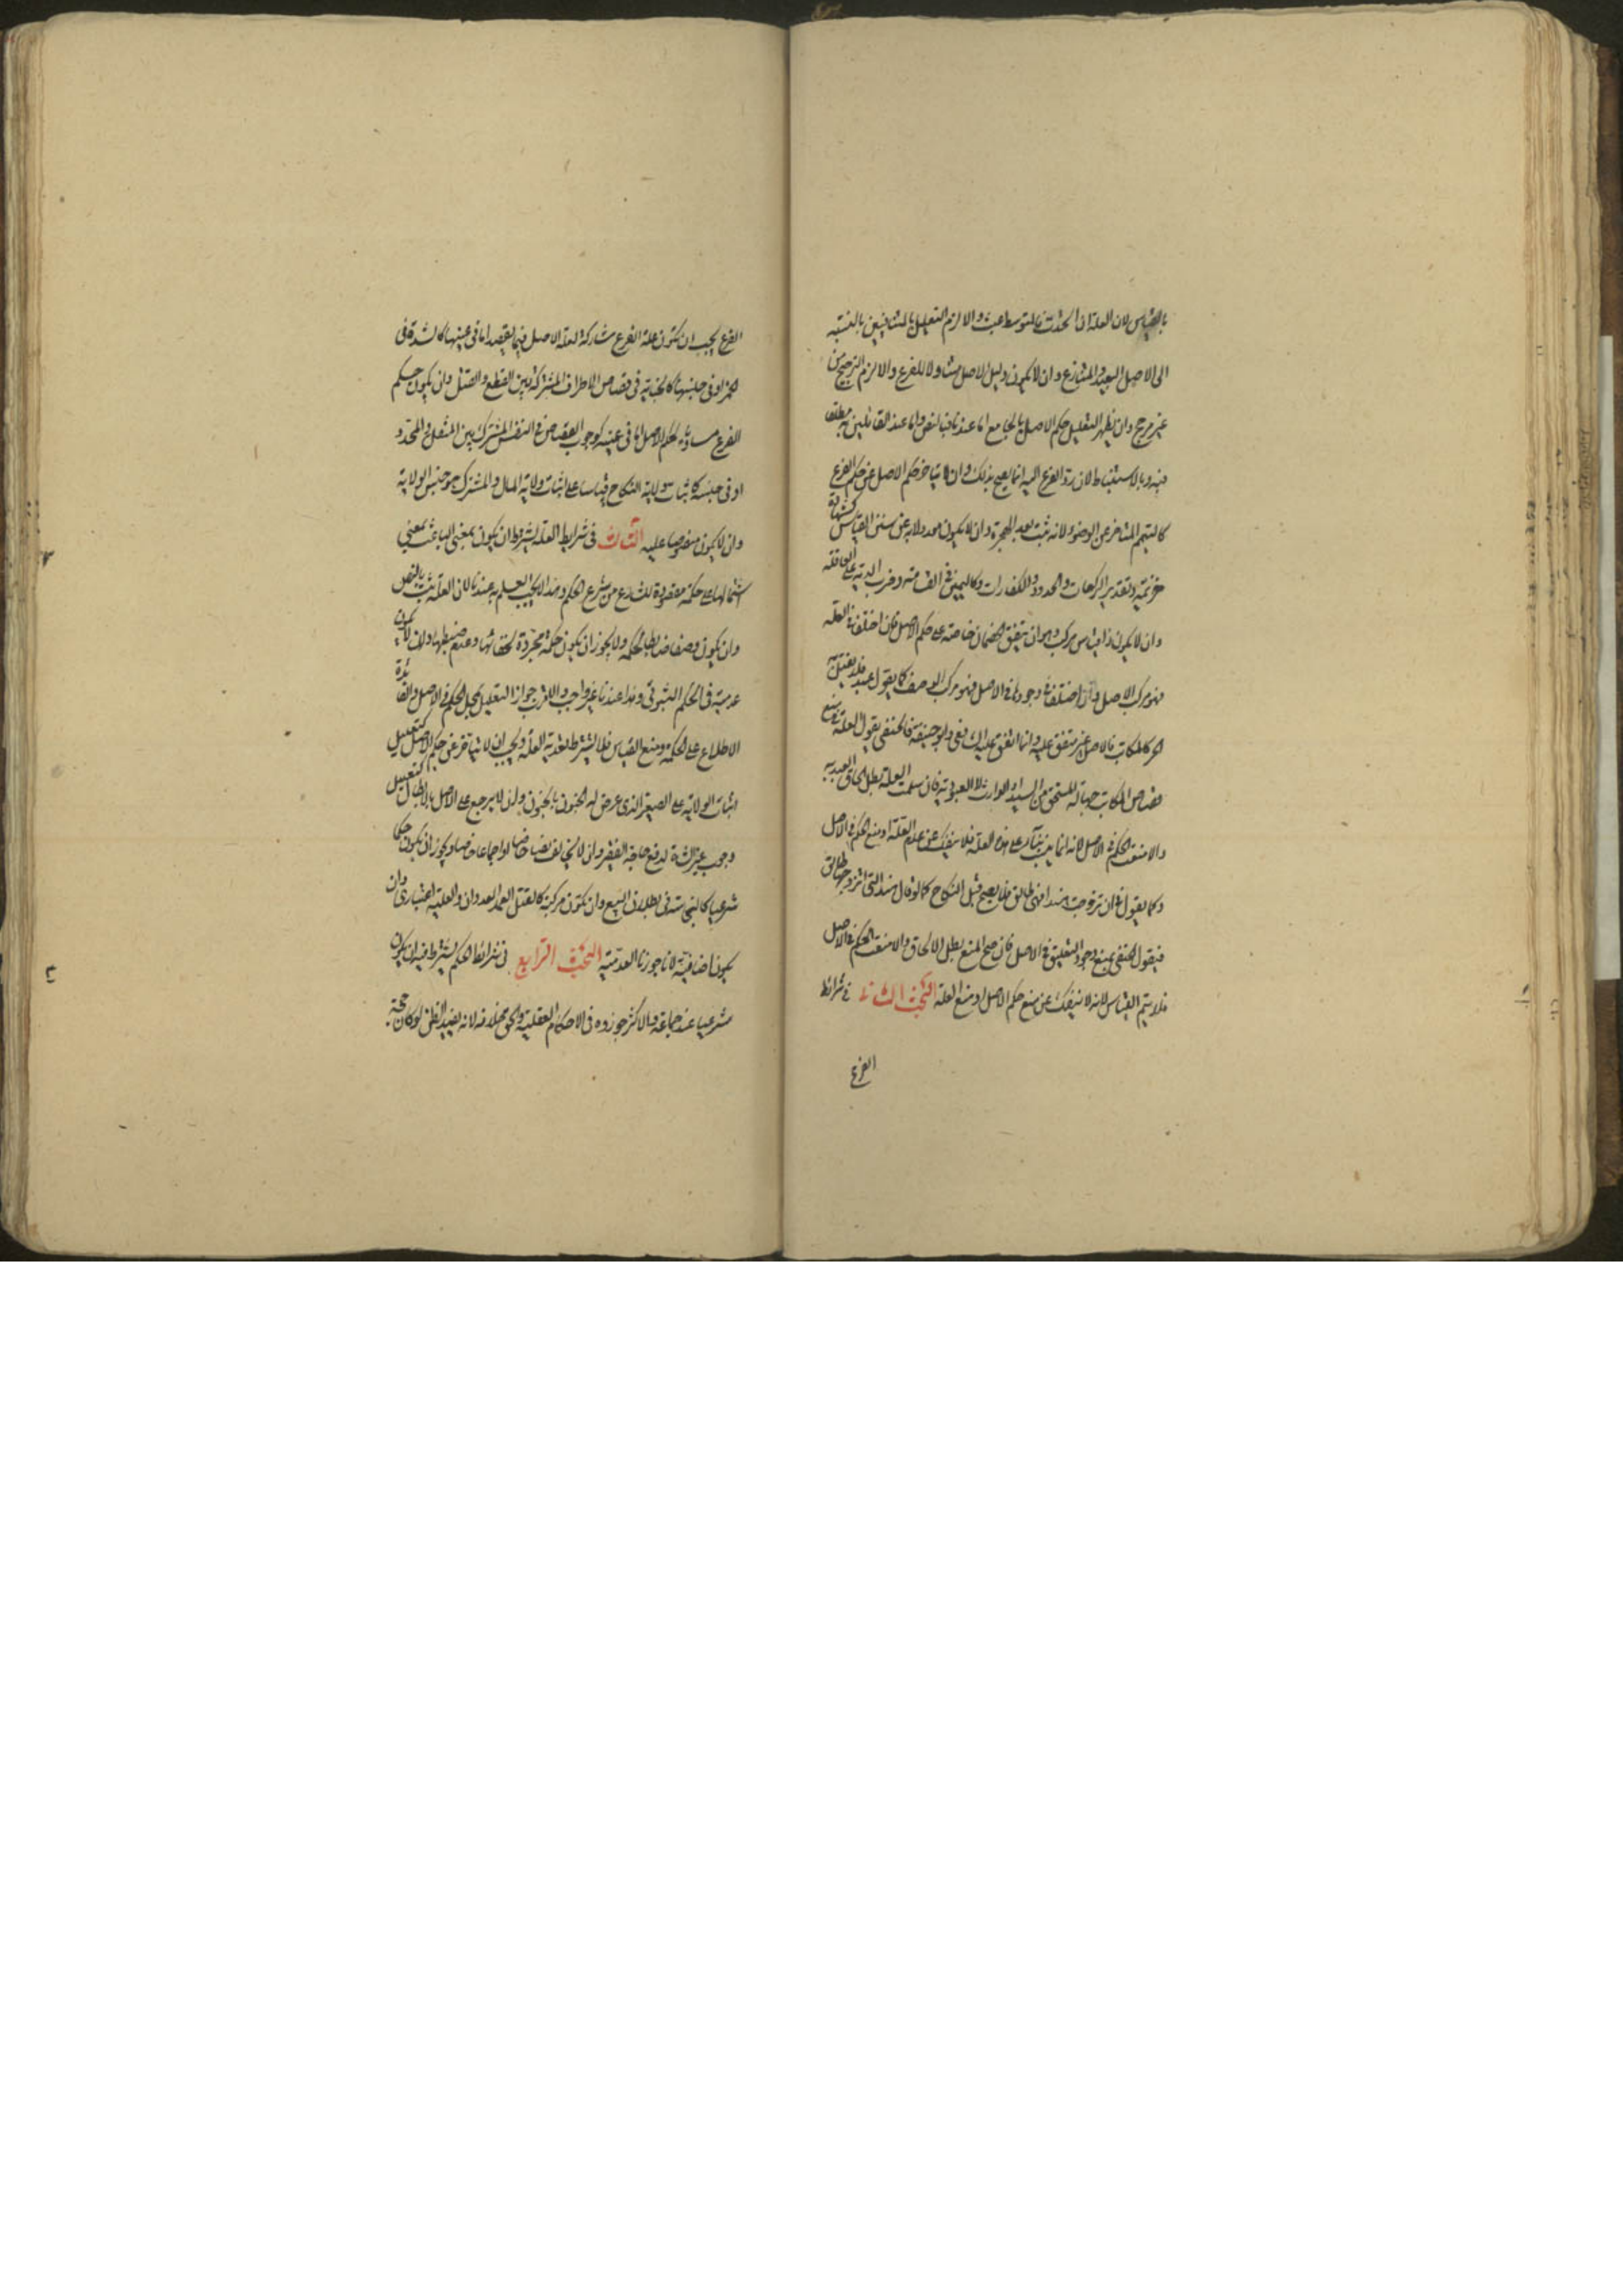 بالقياس لان العلة ان اتحدت فالمتوسط عبث والا لزم التعليل بالمتنافيين بالنسبة
الى الاصل البعيد والمتنازع وان لا يكون دليل الاصل متناولا للفرع والا لزم الترجيح من
غير مرجح وان يظهر التعليل حكم الاصل بالجامع اما عندنا فبالنص واما عند القائلين به مطلقا
فبه وبالاستنباط لان رد الفرع اليه انما يصح بذلك وان لا يتاخر حكم الاصل عن حكم الفرع
كالتيمم المتاخر عن الوضوء لانه يثبت بعد الهجرة وان لا يكون معدولا به عن سنن القياس كشهادة
خزيمة وتقدير الركعات والحدود والكفارات وكاليمين في القسامة وضرب الدية على العاقلة
وان لا يكون ذا قياس مركب وهو ان يتفق الخصمان خاصة على حكم الاصل فان اختلفا في العلة
فهو مركب الاصل وان اختلفا في وجودها في الاصل فهو مركب الوصف كما يقول عبد فلا يقتل به
الحر كالمكاتب فالاصل غير متفق عليه وانما اتفق عليه الشافعي وابو حنيفة فالحنفي يقول العلة في منع
قصاص المكاتب جهالة المستحق من السيد او الوارث لا العبودية فان سلمت العلة بطل الحاق العبد به
والا منعت الحكم في الاصل لانه انما يثبت بناء على هذه العلة فلا ينفك عن عدم العلة او منع الحكم في الاصل
وكما يقول في ان تزوجت هند فهي طالق فلا يصح قبل النكاح كما لو قال هند التي اتزوجها طالق
فيقول الحنفي بمنع وجود التعليق في الاصل فان صح المنع بطل الالحاق والا منعت الحكم في الاصل
فلا يتم القياس لانه لا ينفك عن منع حكم الاصل او منع العلة البحث الثاني في شرائط
الفرع
الفرع يجب ان تكون علة الفرع مشاركة لعلة الاصل فيما يقصد اما في عينها كالشدة في
الخمر او في جنسها كالجناية في قصاص الاطراف المشتركة بين القطع والقتل وان يكون حكم
الفرع مساويا لحكم الاصل اما في عينه كوجوب القصاص في النفس المشترك بين المثقل والمحدد
او في جنسه كاثبات ولاية النكاح قياسا على اثبات ولاية المال والمشترك هو جنس الولاية
وان لا يكون منصوصا عليه الثالث في شرايط العلة يشترط ان يكون بمعنى الباعث بمعنى
اشتمالها على حكمة مقصودة للشارع من شرع الحكم وهذا لا يجب العلم به عندنا لان العلة تثبت بالنص
وان يكون وصفا ضابطا لحكمة ولا يجوز ان يكون حكمة مجردة لخفائها وعدم ضبطها وان لا يكون
عدمية في الحكم الثبوتي وهذا عندنا غير واجب والاقرب جواز التعليل بمحل الحكم في الاصل والفائدة
الاطلاع على الحكمة ومنع القياس فلا يشترط تعدية العلة ويجب ان لا يتاخر عن حكم الاصل كتعليل
اثبات الولاية على الصغير الذي عرض له الجنون بالجنون وان لا يرجع على الاصل بالابطال كتعليل
وجوب عين الشاة لدفع حاجة الفقير وان لا يخالف نصا خاصا او اجماعا خاصا ويجوز ان يكون حكما
شرعيا كالنجاسة في بطلان البيع وان يكون مركبة كالقتل العمد العدوان والعلية اعتبارى وان
يكون اضافية لانا جوزنا العدمية البحث الرابع في شرائط الحكم يشترط فيه ان يكون
شرعيا عند جماعة والاكثر جوزوه في الاحكام العقلية والحق خلافه لانه يفيد الظن لو كان حجة